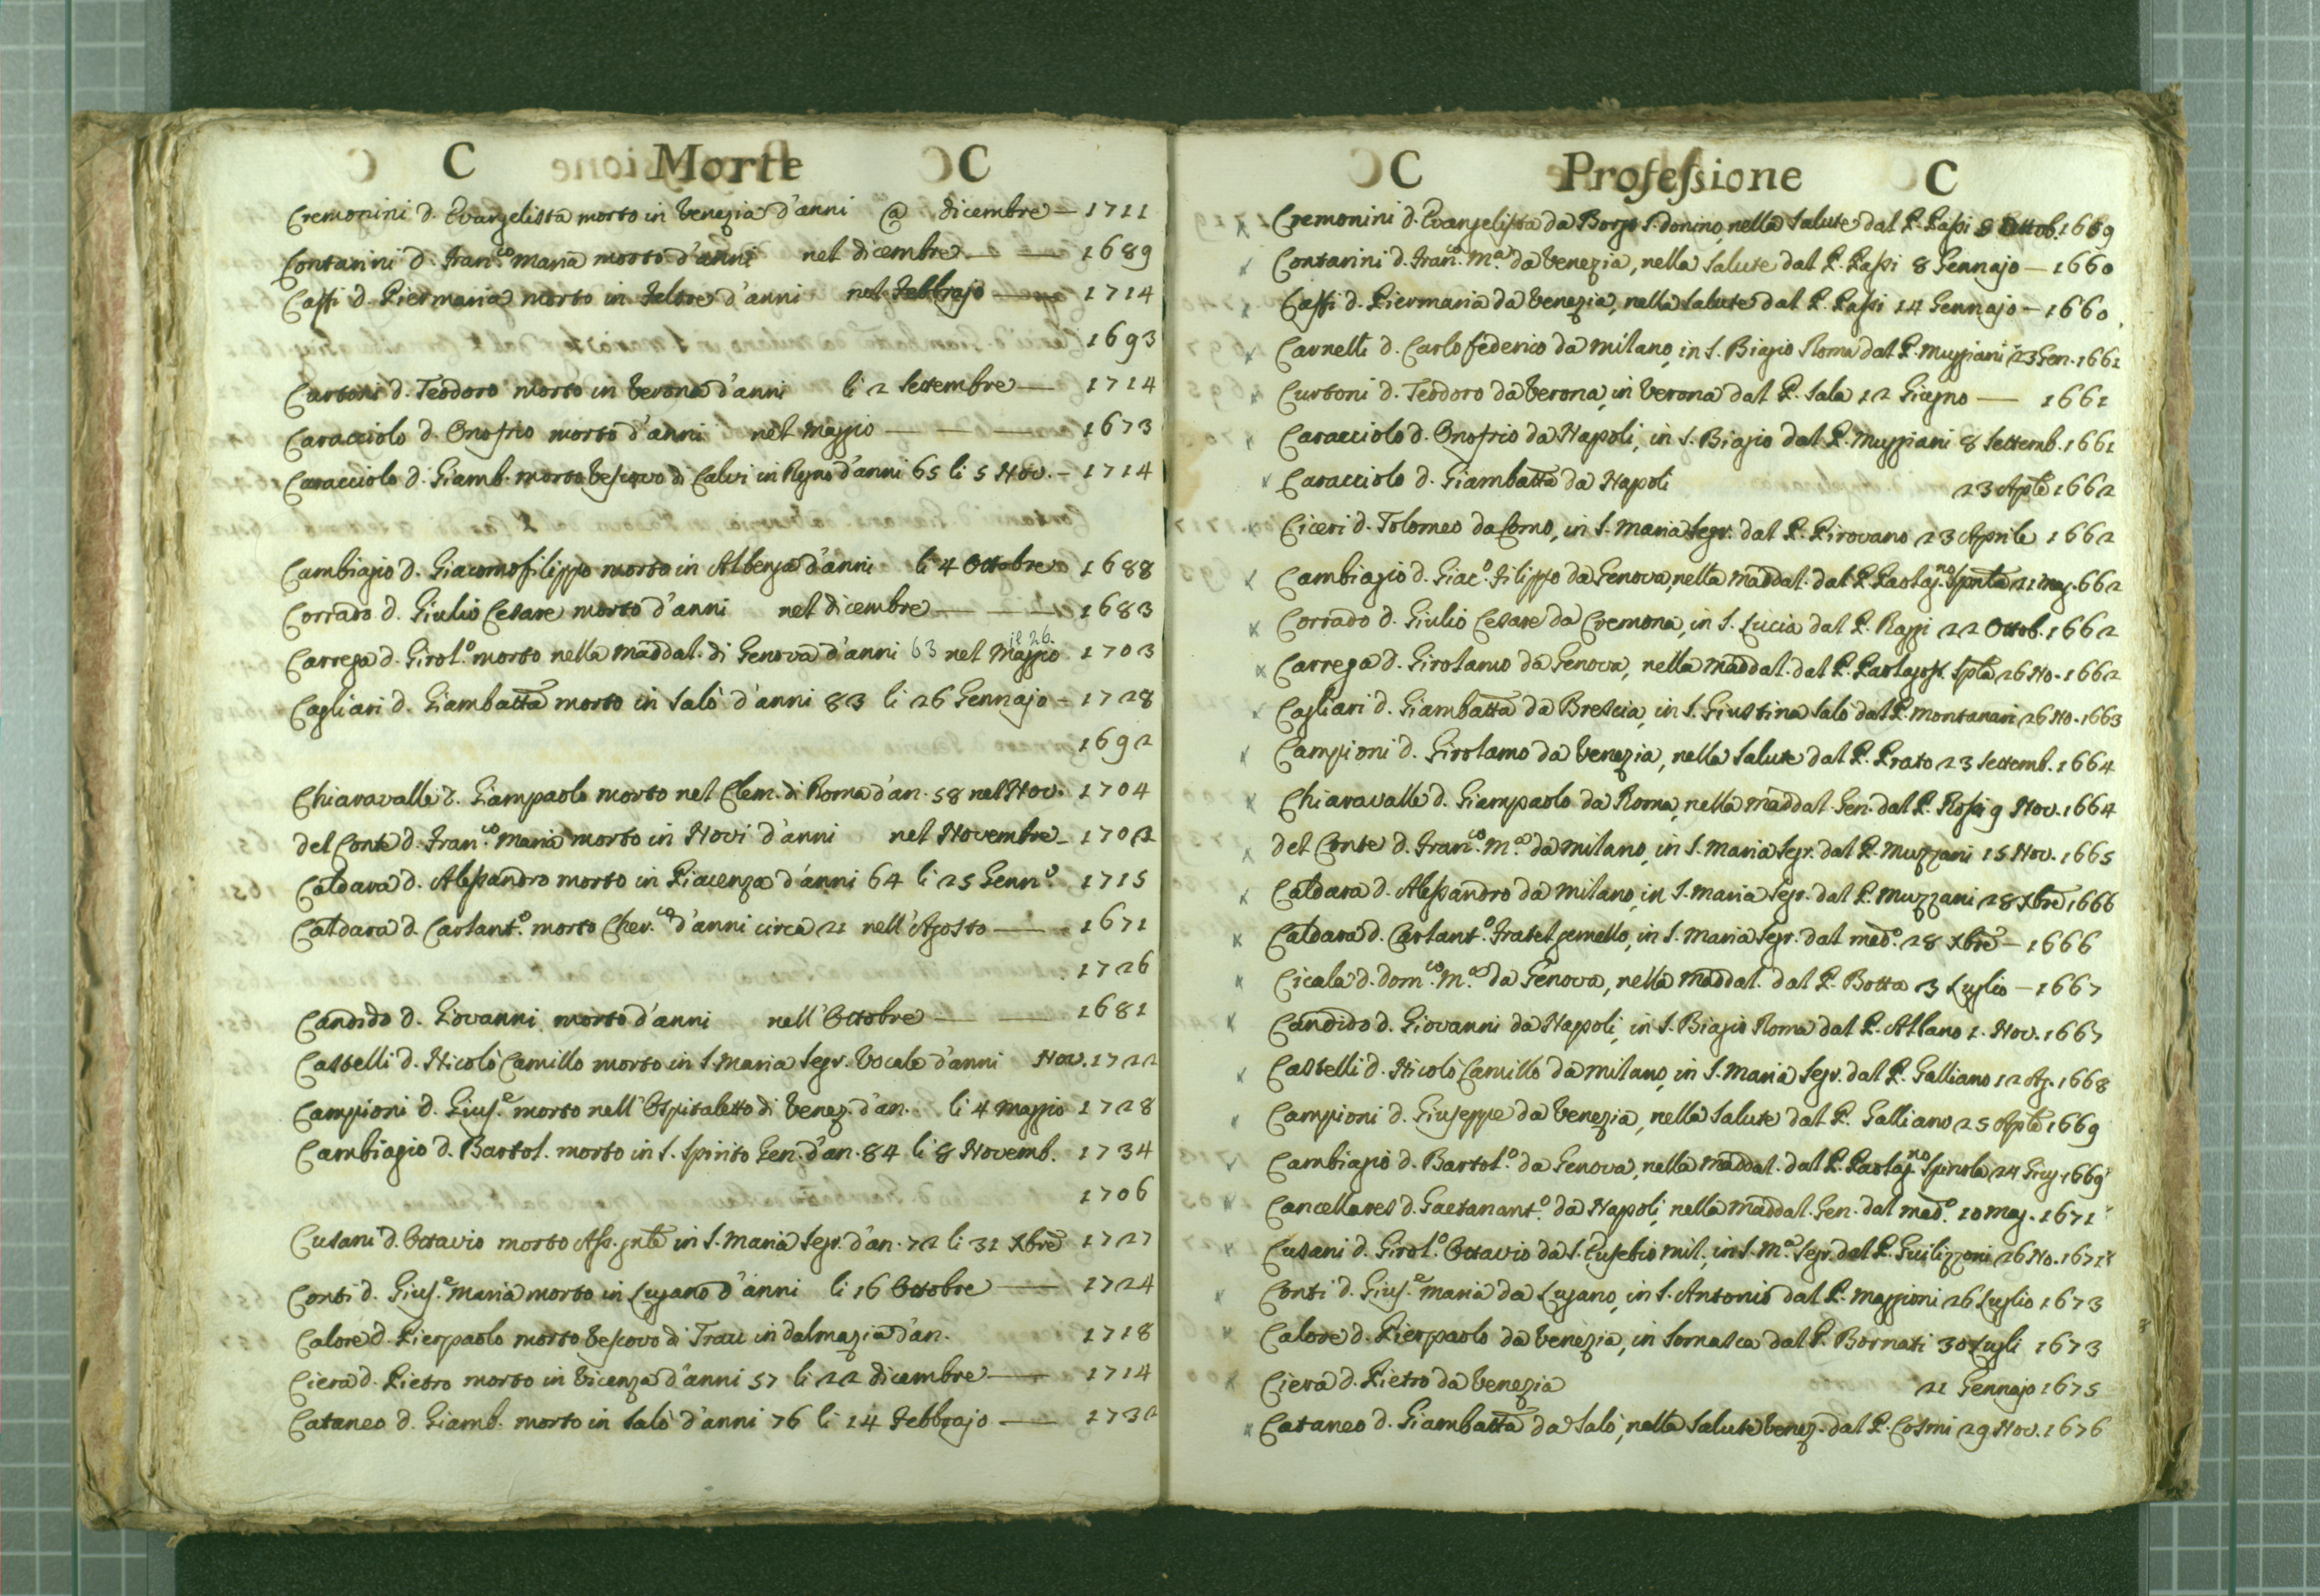 C Morte C
Cremonini d. Evangelista morto in Venezia d'anni @ dicembre — 1711
Contarini d. Fran.co Maria morto d'anni nel dicembre — 1689
Caffi d. Piermaria morto in Feltre d'anni nel Febbrajo — 1714
1693
Curtoni d. Teodoro morto in Verona d'anni li 2 Settembre — 1714
Caracciolo d. Onofrio morto d'anni nel Maggio — 1673
Caracciolo d. Giamb. morto Vescovo di Calvi in Regno d'anni 65 li 5 Nov. — 1714
Cambiagio d. Giacomofilippo morto in Albenga d'anni li 4 Ottobre 1688
Corrado d. Giulio Cesare morto d'anni nel dicembre — 1683
Carrega d. Girol.o morto nella Maddal. di Genova d'anni 63 nel Maggio il 26. 1703
Cagliari d. Giambatta morto in Salò d'anni 83 li 26 Gennajo — 1728
1692
Chiaravalle d. Giampaolo morto nel Clem. di Roma d'an. 58 nel Nov. 1704
del Conte d. Fran.co Maria morto in Novi d'anni nel Novembre — 1702
Caldara d. Alessandro morto in Piacenza d'anni 64 li 25 Genn.o 1715
Caldara d. Carlant.o morto Cher.co d'anni circa 21 nell'Agosto — 1671
1726
Candido d. Giovanni morto d'anni nell'Ottobre — 1681
Castelli d. Nicolò Camillo morto in S. Maria Segr. Vocale d'anni Nov. 1722
Campioni d. Gius.e morto nell'Ospitaletto di Venez. d'an. li 4 Maggio 1728
Cambiagio d. Bartol. morto in S. Spirito Gen. d'an. 84 li 8 Novemb. 1734
1706
Cusani d. Ottavio morto Ass. gnle in S. Maria Segr. d'an. 72 li 31 Xbre 1727
Conti d. Gius.e Maria morto in Lugano d'anni li 16 Ottobre — 1724
Calore d. Pierpaolo morto Vescovo di Trau in dalmazia d'an. 1718
Ciera d. Pietro morto in Vicenza d'anni 57 li 22 dicembre — 1714
Cataneo d. Giamb. morto in Salò d'anni 76 li 14 Febbrajo — 1732
C Professione C
Cremonini d. Evangelista da Borgo S. donino, nella Salute dal P. Passi 8 Ottob. 1669
Contarini d. Fran.co M.a da Venezia, nella Salute dal P. Passi 8 Gennajo — 1660
Caffi d. Piermaria da Venezia, nella Salute dal P. Passi 14 Gennajo — 1660
Carnelli d. Carlo federico da Milano, in S. Biagio Roma dal P. Muzziani 23 Gen. 1661
Curtoni d. Teodoro da Verona, in Verona dal P. Sala 12 Giugno — 1661
Caracciolo d. Onofrio da Napoli, in S. Biagio dal P. Muzziani 8 Settemb. 1661
Caracciolo d. Giambatta da Napoli 23 Aple 1662
Ciceri d. Tolomeo da Como, in S. Maria Segr. dal P. Pirovano 23 Aprile 1662
Cambiagio d. Giac.o Filippo da Genova, nella Maddal. dal P. Pastag.no Spinola 21 Mag. 662
Corrado d. Giulio Cesare da Cremona, in S. Lucia dal P. Raggi 22 Ottob. 1662
Carrega d. Girolamo da Genova, nella Maddal. dal P. Spla 26 No. 1662
Cagliari d. Giambatta da Brescia, in S. Giustina Salò dal P. Montanari 26 No. 1663
Campioni d. Girolamo da Venezia, nella Salute dal P. Prato 23 Settemb. 1664
Chiaravalle d. Giampaolo da Roma, nella Maddal. Gen. dal P. Rossi 9 Nov. 1664
del Conte d. Fran.co M.a da Milano, in S. Maria Segr. dal P. Muzzani 15 Nov. 1665
Caldara d. Alessandro da Milano, in S. Maria Segr. dal P. Muzzani 28 Xbre 1666
Caldara d. Carlant.o Fratel gemello, in S. Maria Segr. dal med.o 28 Xbre — 1666
Cicala d. dom.co M.a da Genova, nella Maddal. dal P. Botta 3 Luglio — 1667
Candido d. Giovanni da Napoli, in S. Biagio Roma dal P. Allano 1. Nov. 1667
Castelli d. Nicolò Camillo da Milano, in S. Maria Segr. dal P. Galliano 12 Ag. 1668
Campioni d. Giuseppe da Venezia, nella Salute dal P. Galliano 25 Aple 1669
Cambiagio d. Bartol.o da Genova, nella Maddal. dal P. Pastag.no Spinola 24 Giug. 1669
Cancellares d. Gaetanant.o da Napoli, nella Maddal. Gen. dal med.o 10 Mag. 1671
Cusani d. Girol.o Ottavio da S. Eusebio Mil., in S. M.a Segr. dal P. Guilizzoni 26 No. 1671
Conti d. Gius.e Maria da Lugano, in S. Antonio dal P. Maggioni 26 Luglio 1673
Calore d. Pierpaolo da Venezia, in Somasca dal P. Bornati 30 Lugli 1673
Ciera d. Pietro da Venezia 21 Gennajo 1675
Cataneo d. Giambatta da Salò, nella Salute Venez. dal P. Cosmi 29 Nov. 1676